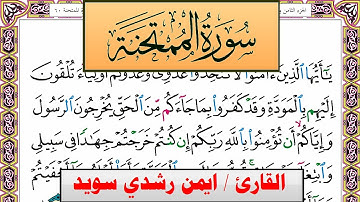 سورة الممتحنة
يَـٰٓأَيُّهَا ٱلَّذِينَ ءَامَنُوا۟ لَا تَتَّخِذُوا۟ عَدُوِّى وَعَدُوَّكُمْ أَوْلِيَآءَ تُلْقُونَ
إِلَيْهِم بِٱلْمَوَدَّةِ وَقَدْ كَفَرُوا۟ بِمَا جَآءَكُم مِّنَ ٱلْحَقِّ يُخْرِجُونَ ٱلرَّسُولَ
وَإِيَّاكُمْ أَن تُؤْمِنُوا۟ بِٱللَّهِ رَبِّكُمْ إِن كُنتُمْ خَرَجْتُمْ جِهَـٰدًا فِى سَبِيلِى
وَٱبْتِغَآءَ
القارئ / ايمن رشدي سويد